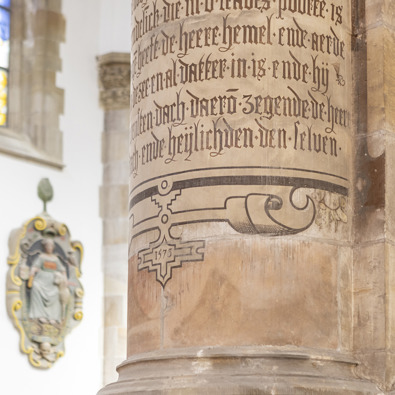 die in d leades poorte is
heeft de heere hemel ende aerde
zee en al datter in is ende hij
dach daerō zegende de heer
ende heijlichden den selven
1573